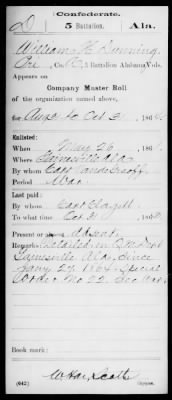 Confederate.
5 Battalion. Ala.
William H.
Pri, Co. , 5 Battalion Alabama Vols.
Appears on
Company Muster Roll
of the organization named above,
for Aug 31 to Oct 31, 1864.
Enlisted:
When May 26, 186
Where Gainesville Ala
By whom Capt Vandegraaff
Period War
Last paid:
By whom Capt
To what time Oct 31, 186
Present or absent Absent
Remarks: Detailed in Q M Dept
Gainesville Ala, Since
Jany 27, 1864, Special
Order No 22, Sec War
Book mark:
(642) Copyist.